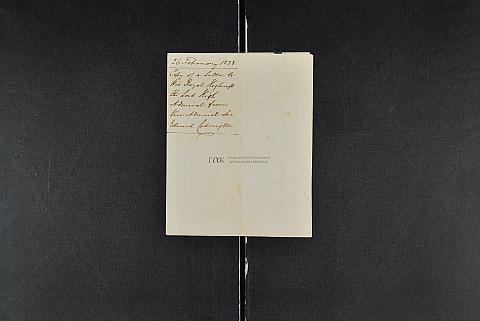 26 February 1828.
Copy of a Letter to
His Royal Highness
the Lord High
Admiral from
Vice Admiral Sir
Edward Codrington
ΓΑΚ